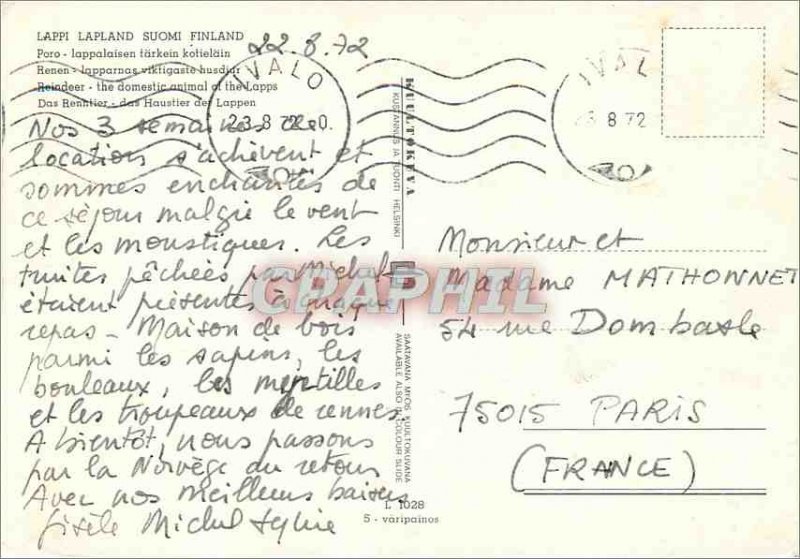 LAPPI LAPLAND SUOMI FINLAND
Poro - lappalaisen tärkein kotieläin
Renen - lapparnas viktigaste husdjur
Reindeer - the domestic animal of the Lapps
Das Renntier - das Haustier der Lappen
22.8.72
IVALO
23.8.72
Nos 3 semaines de
location s'achèvent et
sommes enchantés de
ce séjour malgré le vent
et les moustiques. Les
truites pêchées par Michel
étaient présentes à chaque
repas - Maison de bois
parmi les sapins, les
bouleaux, les myrtilles
et les troupeaux de rennes.
A bientôt, nous passons
par la Norvège au retour
Avec nos meilleurs baisers
Gisèle Michel Sylvie
KUULTOKUVA
KUSTANNUS JA TUONTI HELSINKI
CPAPHIL
SAATAVANA MYÖS KUULTOKUVANA
AVAILABLE ALSO IN COLOUR SLIDE
L 1028
5 - väripainos
IVALO
23.8.72
Monsieur et
Madame MATHONNET
54 rue Dombasle
75015 PARIS
(FRANCE)